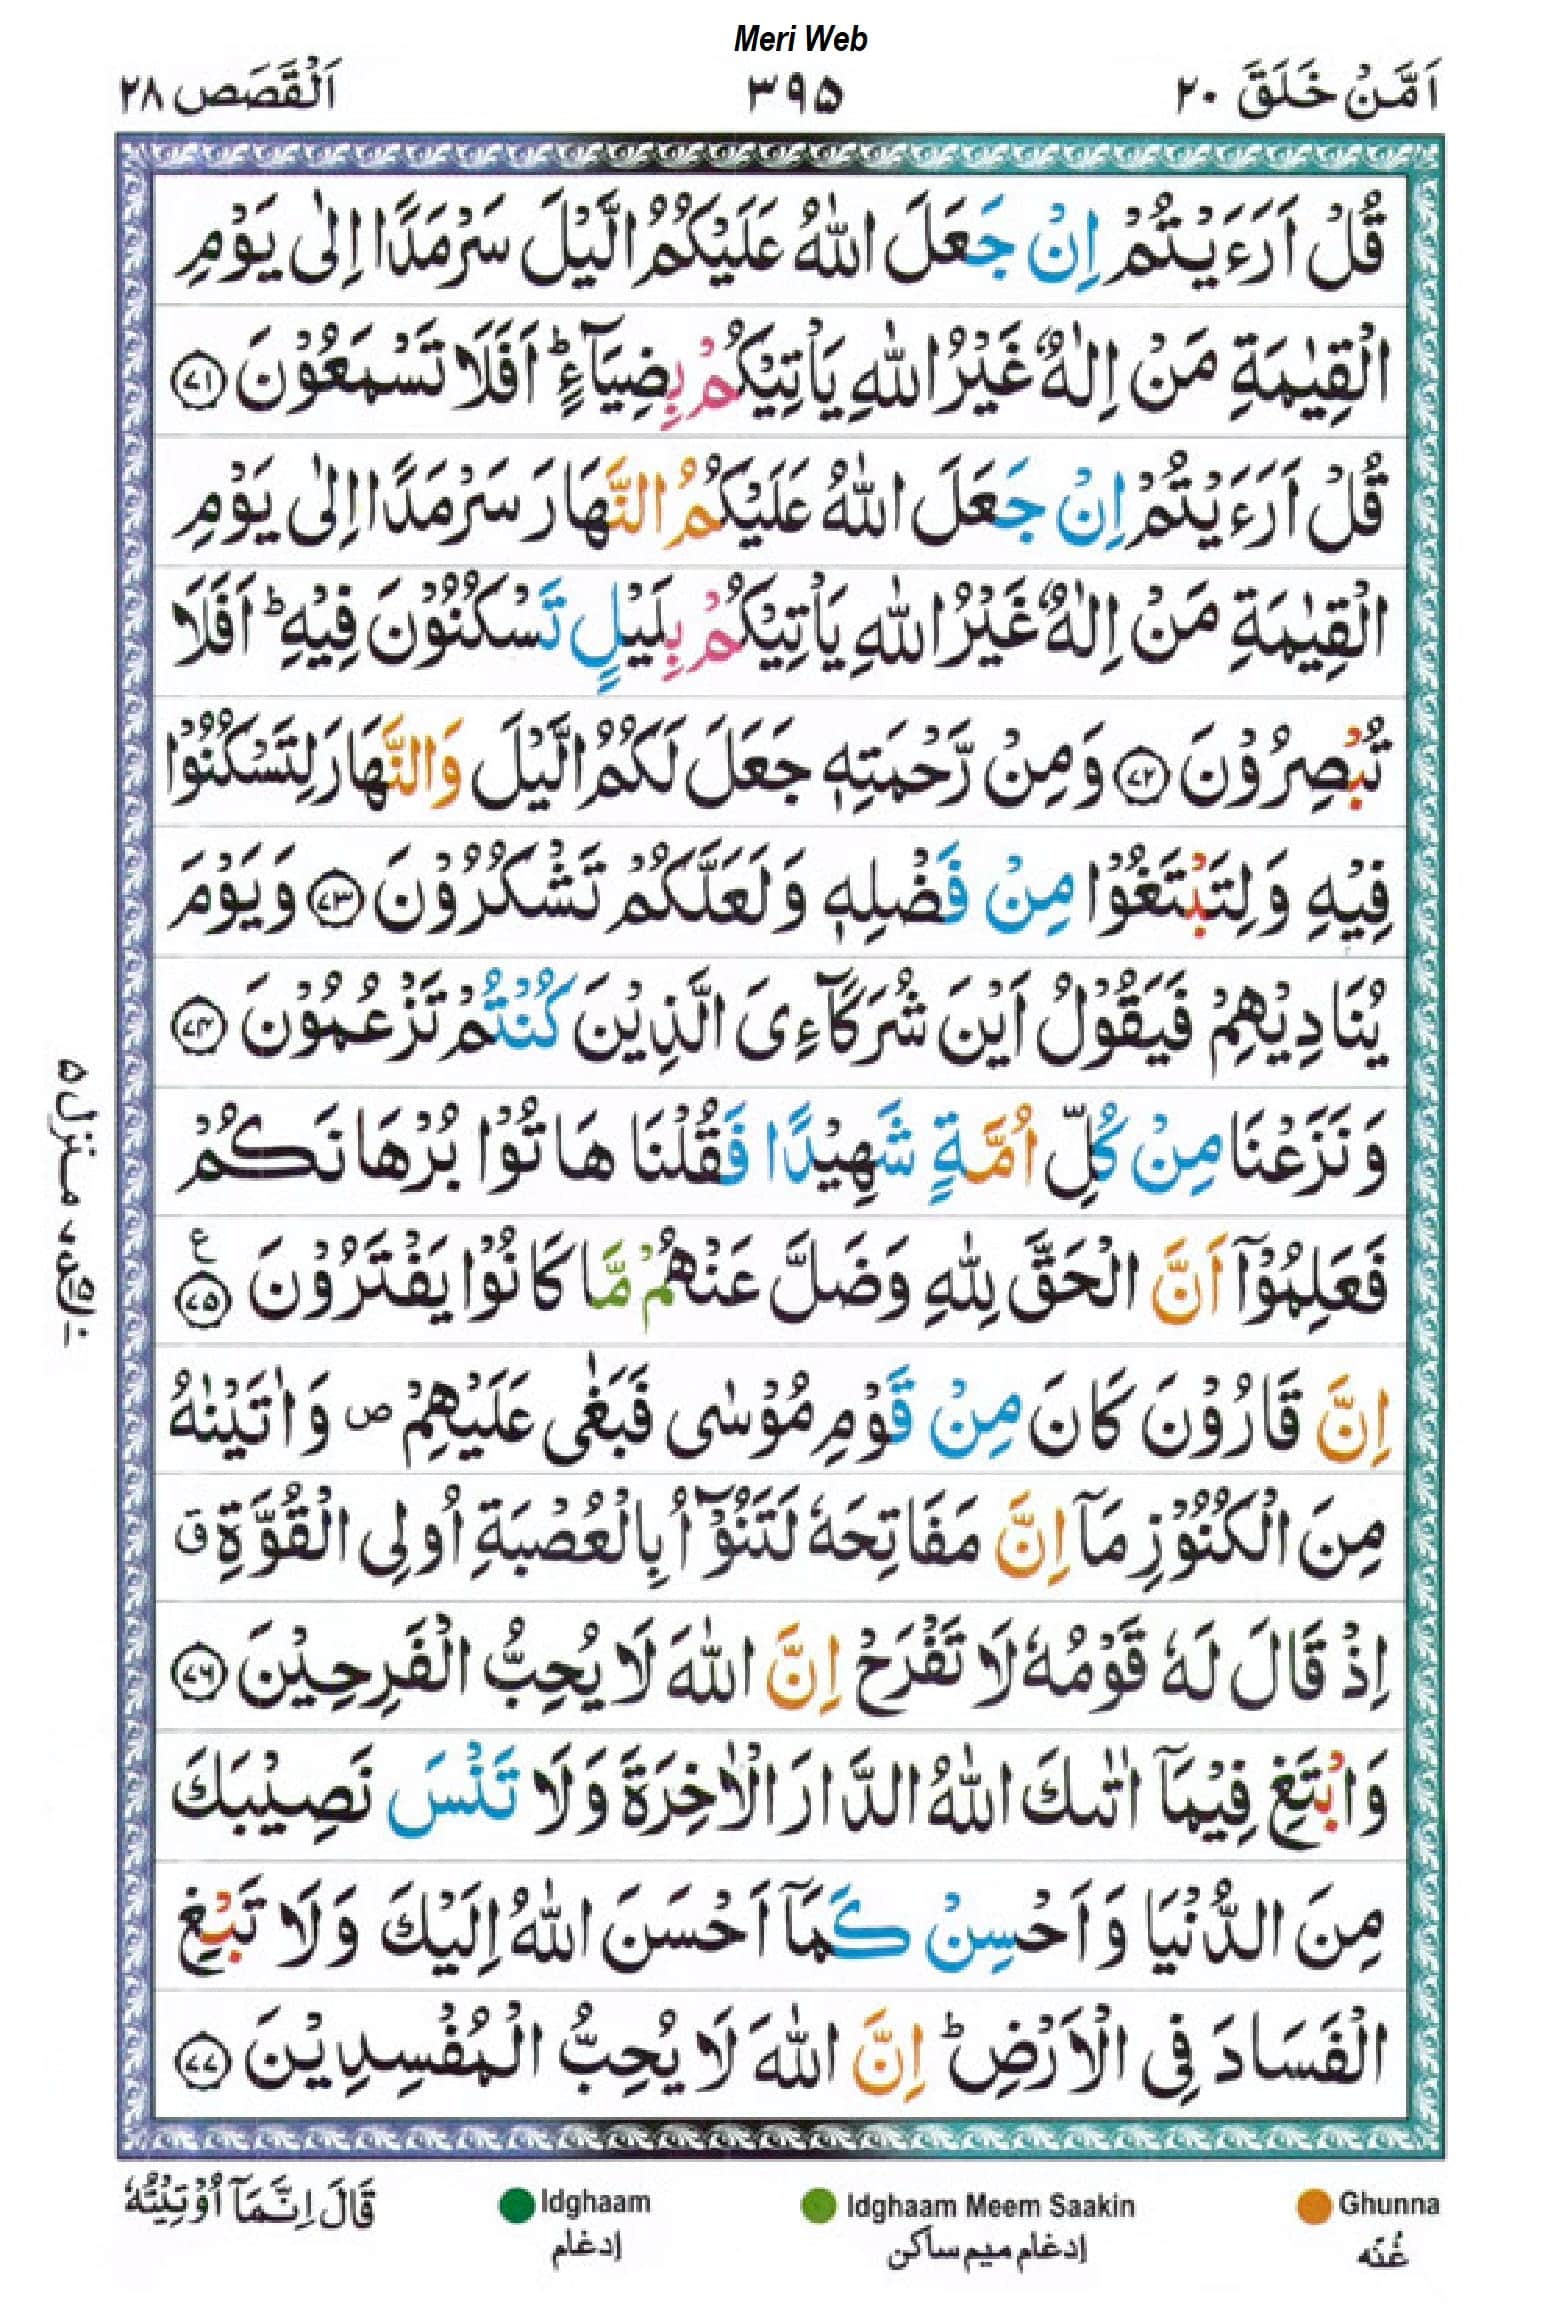 Meri Web
اَمَّنْ خَلَقَ ٢٠ ٣٩٥ اَلْقَصَص ٢٨
قُلْ اَرَءَيْتُمْ اِنْ جَعَلَ اللّٰهُ عَلَيْكُمُ الَّيْلَ سَرْمَدًا اِلٰى يَوْمِ
الْقِيٰمَةِ مَنْ اِلٰهٌ غَيْرُ اللّٰهِ يَاْتِيْكُمْ بِضِيَآءٍ ؕ اَفَلَا تَسْمَعُوْنَ ٧١
قُلْ اَرَءَيْتُمْ اِنْ جَعَلَ اللّٰهُ عَلَيْكُمُ النَّهَارَ سَرْمَدًا اِلٰى يَوْمِ
الْقِيٰمَةِ مَنْ اِلٰهٌ غَيْرُ اللّٰهِ يَاْتِيْكُمْ بِلَيْلٍ تَسْكُنُوْنَ فِيْهِ ؕ اَفَلَا
تُبْصِرُوْنَ ٧٢ وَمِنْ رَّحْمَتِهٖ جَعَلَ لَكُمُ الَّيْلَ وَالنَّهَارَ لِتَسْكُنُوْا
فِيْهِ وَلِتَبْتَغُوْا مِنْ فَضْلِهٖ وَلَعَلَّكُمْ تَشْكُرُوْنَ ٧٣ وَيَوْمَ
يُنَادِيْهِمْ فَيَقُوْلُ اَيْنَ شُرَكَآءِىَ الَّذِيْنَ كُنْتُمْ تَزْعُمُوْنَ ٧٤
وَنَزَعْنَا مِنْ كُلِّ اُمَّةٍ شَهِيْدًا فَقُلْنَا هَاتُوْا بُرْهَانَكُمْ
فَعَلِمُوْٓا اَنَّ الْحَقَّ لِلّٰهِ وَضَلَّ عَنْهُمْ مَّا كَانُوْا يَفْتَرُوْنَ ٧٥ ع
اِنَّ قَارُوْنَ كَانَ مِنْ قَوْمِ مُوْسٰى فَبَغٰى عَلَيْهِمْ ص وَاٰتَيْنٰهُ
مِنَ الْكُنُوْزِ مَآ اِنَّ مَفَاتِحَهٗ لَتَنُوْٓاُ بِالْعُصْبَةِ اُولِى الْقُوَّةِ ق
اِذْ قَالَ لَهٗ قَوْمُهٗ لَا تَفْرَحْ اِنَّ اللّٰهَ لَا يُحِبُّ الْفَرِحِيْنَ ٧٦
وَابْتَغِ فِيْمَآ اٰتٰىكَ اللّٰهُ الدَّارَ الْاٰخِرَةَ وَلَا تَنْسَ نَصِيْبَكَ
مِنَ الدُّنْيَا وَاَحْسِنْ كَمَآ اَحْسَنَ اللّٰهُ اِلَيْكَ وَلَا تَبْغِ
الْفَسَادَ فِى الْاَرْضِ ؕ اِنَّ اللّٰهَ لَا يُحِبُّ الْمُفْسِدِيْنَ ٧٧
منزل ٥
Ghunna Idghaam Meem Saakin Idghaam قَالَ اِنَّمَآ اُوْتِيْتُهٗ
غُنّه إدغام ميم ساكن إدغام